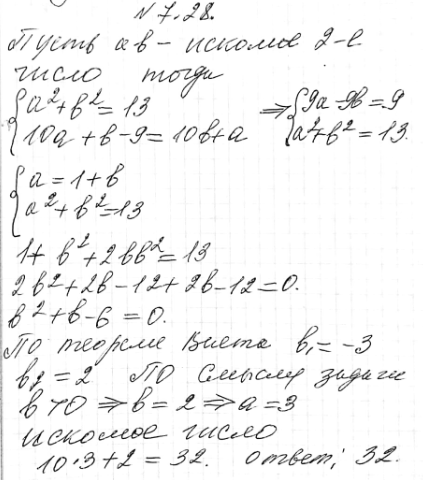 N 7.28.
Пусть ab - искомое 2-е
число тогда
{a²+b²=13 ⇒ {9a-9b=9
{10a+b-9=10b+a {a²+b²=13.
{a=1+b
{a²+b²=13
1+b²+2bb²=13
2b²+2b-12+2b-12=0.
b²+b-6=0.
По теореме Виета b₁=-3
b₂=2 По смыслу задачи
b>0 ⇒ b=2 ⇒ a=3
искомое число
10·3+2=32. ответ: 32.